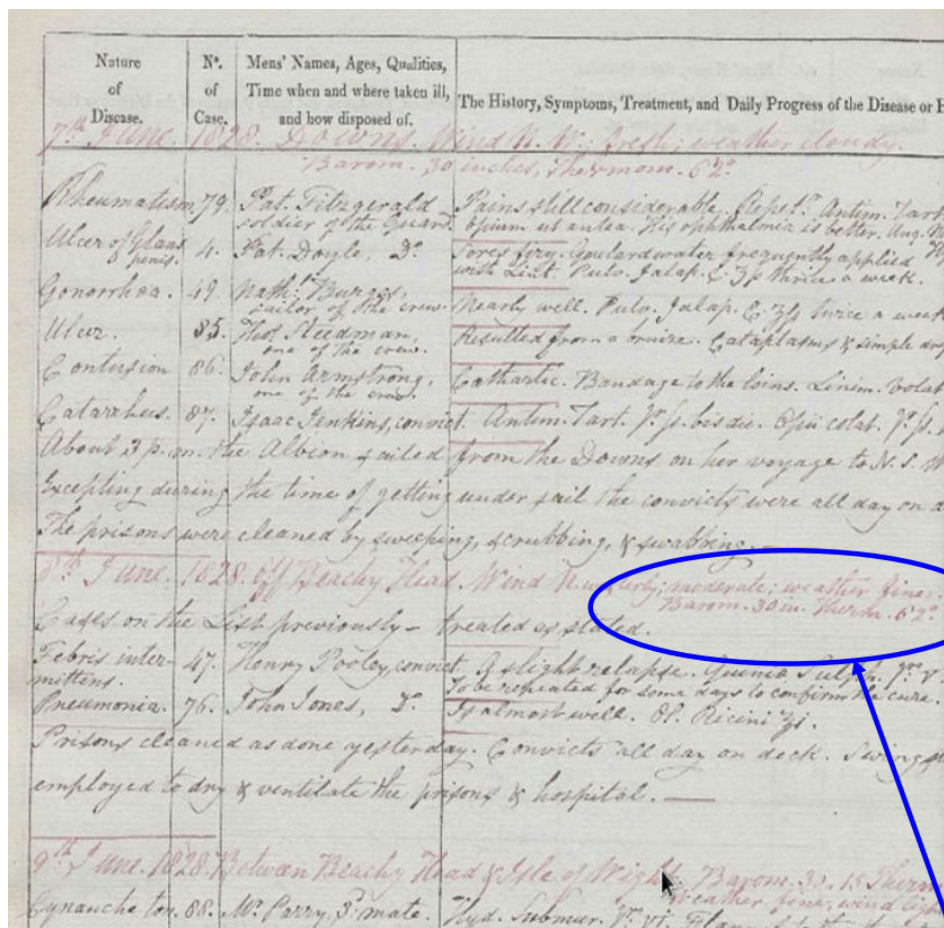 Nature of Disease. | Nº. of Case. | Mens' Names, Ages, Qualities, Time when and where taken ill, and how disposed of. | The History, Symptoms, Treatment, and Daily Progress of the Disease or H
7th June. 1828. Downs. Wind N.W.; fresh; weather cloudy.
Barom. 30 inches, Thermom. 62º
Rheumatism. 79. Pat. Fitzgerald soldier of the Guard. Pains still considerable. Repetr. Antim. Tart
Opium ut antea. His ophthalmia is better. Ung. 
Ulcer of Glans penis. 4. Pat. Doyle, Dº. Sores firy. Goulard water frequently applied
with Lint. Pulv. Jalap. C. thrice a week.
Gonorrhoea. 49. Nathl. Burges, sailor of the crew. Nearly well. Pulv. Jalap. C. twice a week
Ulcer. 85. Thos. Steedman, one of the crew. Resulted from a bruise. Cataplasms & simple dres
Contusion 86. John Armstrong, one of the crew. Cathartic. Bandage to the loins. Linim. volat
Catarrhus. 87. Isaac Jenkins, convict. Antim. Tart. gr. bis die. Opii colat. gr.
About 3 p.m. the Albion sailed from the Downs on her voyage to N. S. W
Excepting during the time of getting under sail the convicts were all day on d
The prisons were cleaned by sweeping, scrubbing, & swabbing. —
8th June. 1828. off Beachy Head. Wind N.westerly; moderate; weather finer.
Barom. 30 in. Therm. 62º
Cases on the List previously – treated as stated.
Febris intermittens. 47. Henry Pooley, convict. A slight relapse. Quinae Sulph. grs. v
To be repeated for some days to confirm the cure.
Pneumonia. 76. John Jones, Dº. Is almost well. Ol. Ricini ℥i.
Prisons cleaned as done yesterday. Convicts all day on deck. Swing st
employed to dry & ventilate the prisons & hospital. —
9th June. 1828. Between Beachy Head & Isle of Wight. Barom. 30. 15 Therm
Weather fine, wind ligh
Cynanche ton. 88. Mr. Parry, 3d mate. Hyd. Submur. gr. vi.